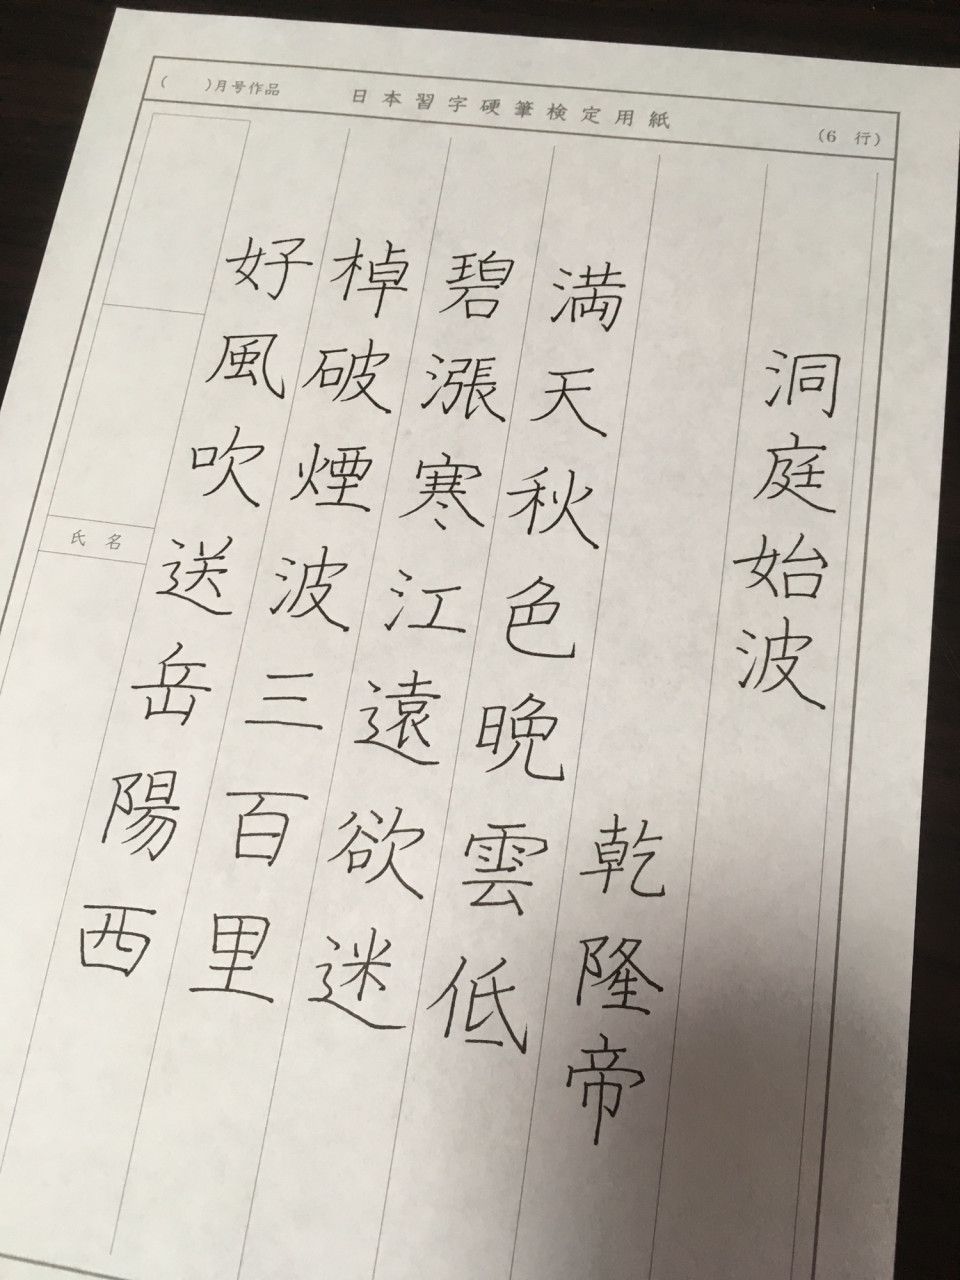 ( )月号作品 日本習字硬筆検定用紙 (6 行)
洞庭始波
乾隆帝
満天秋色晩雲低
碧漲寒江遠欲迷
棹破煙波三百里
好風吹送岳陽西
氏名